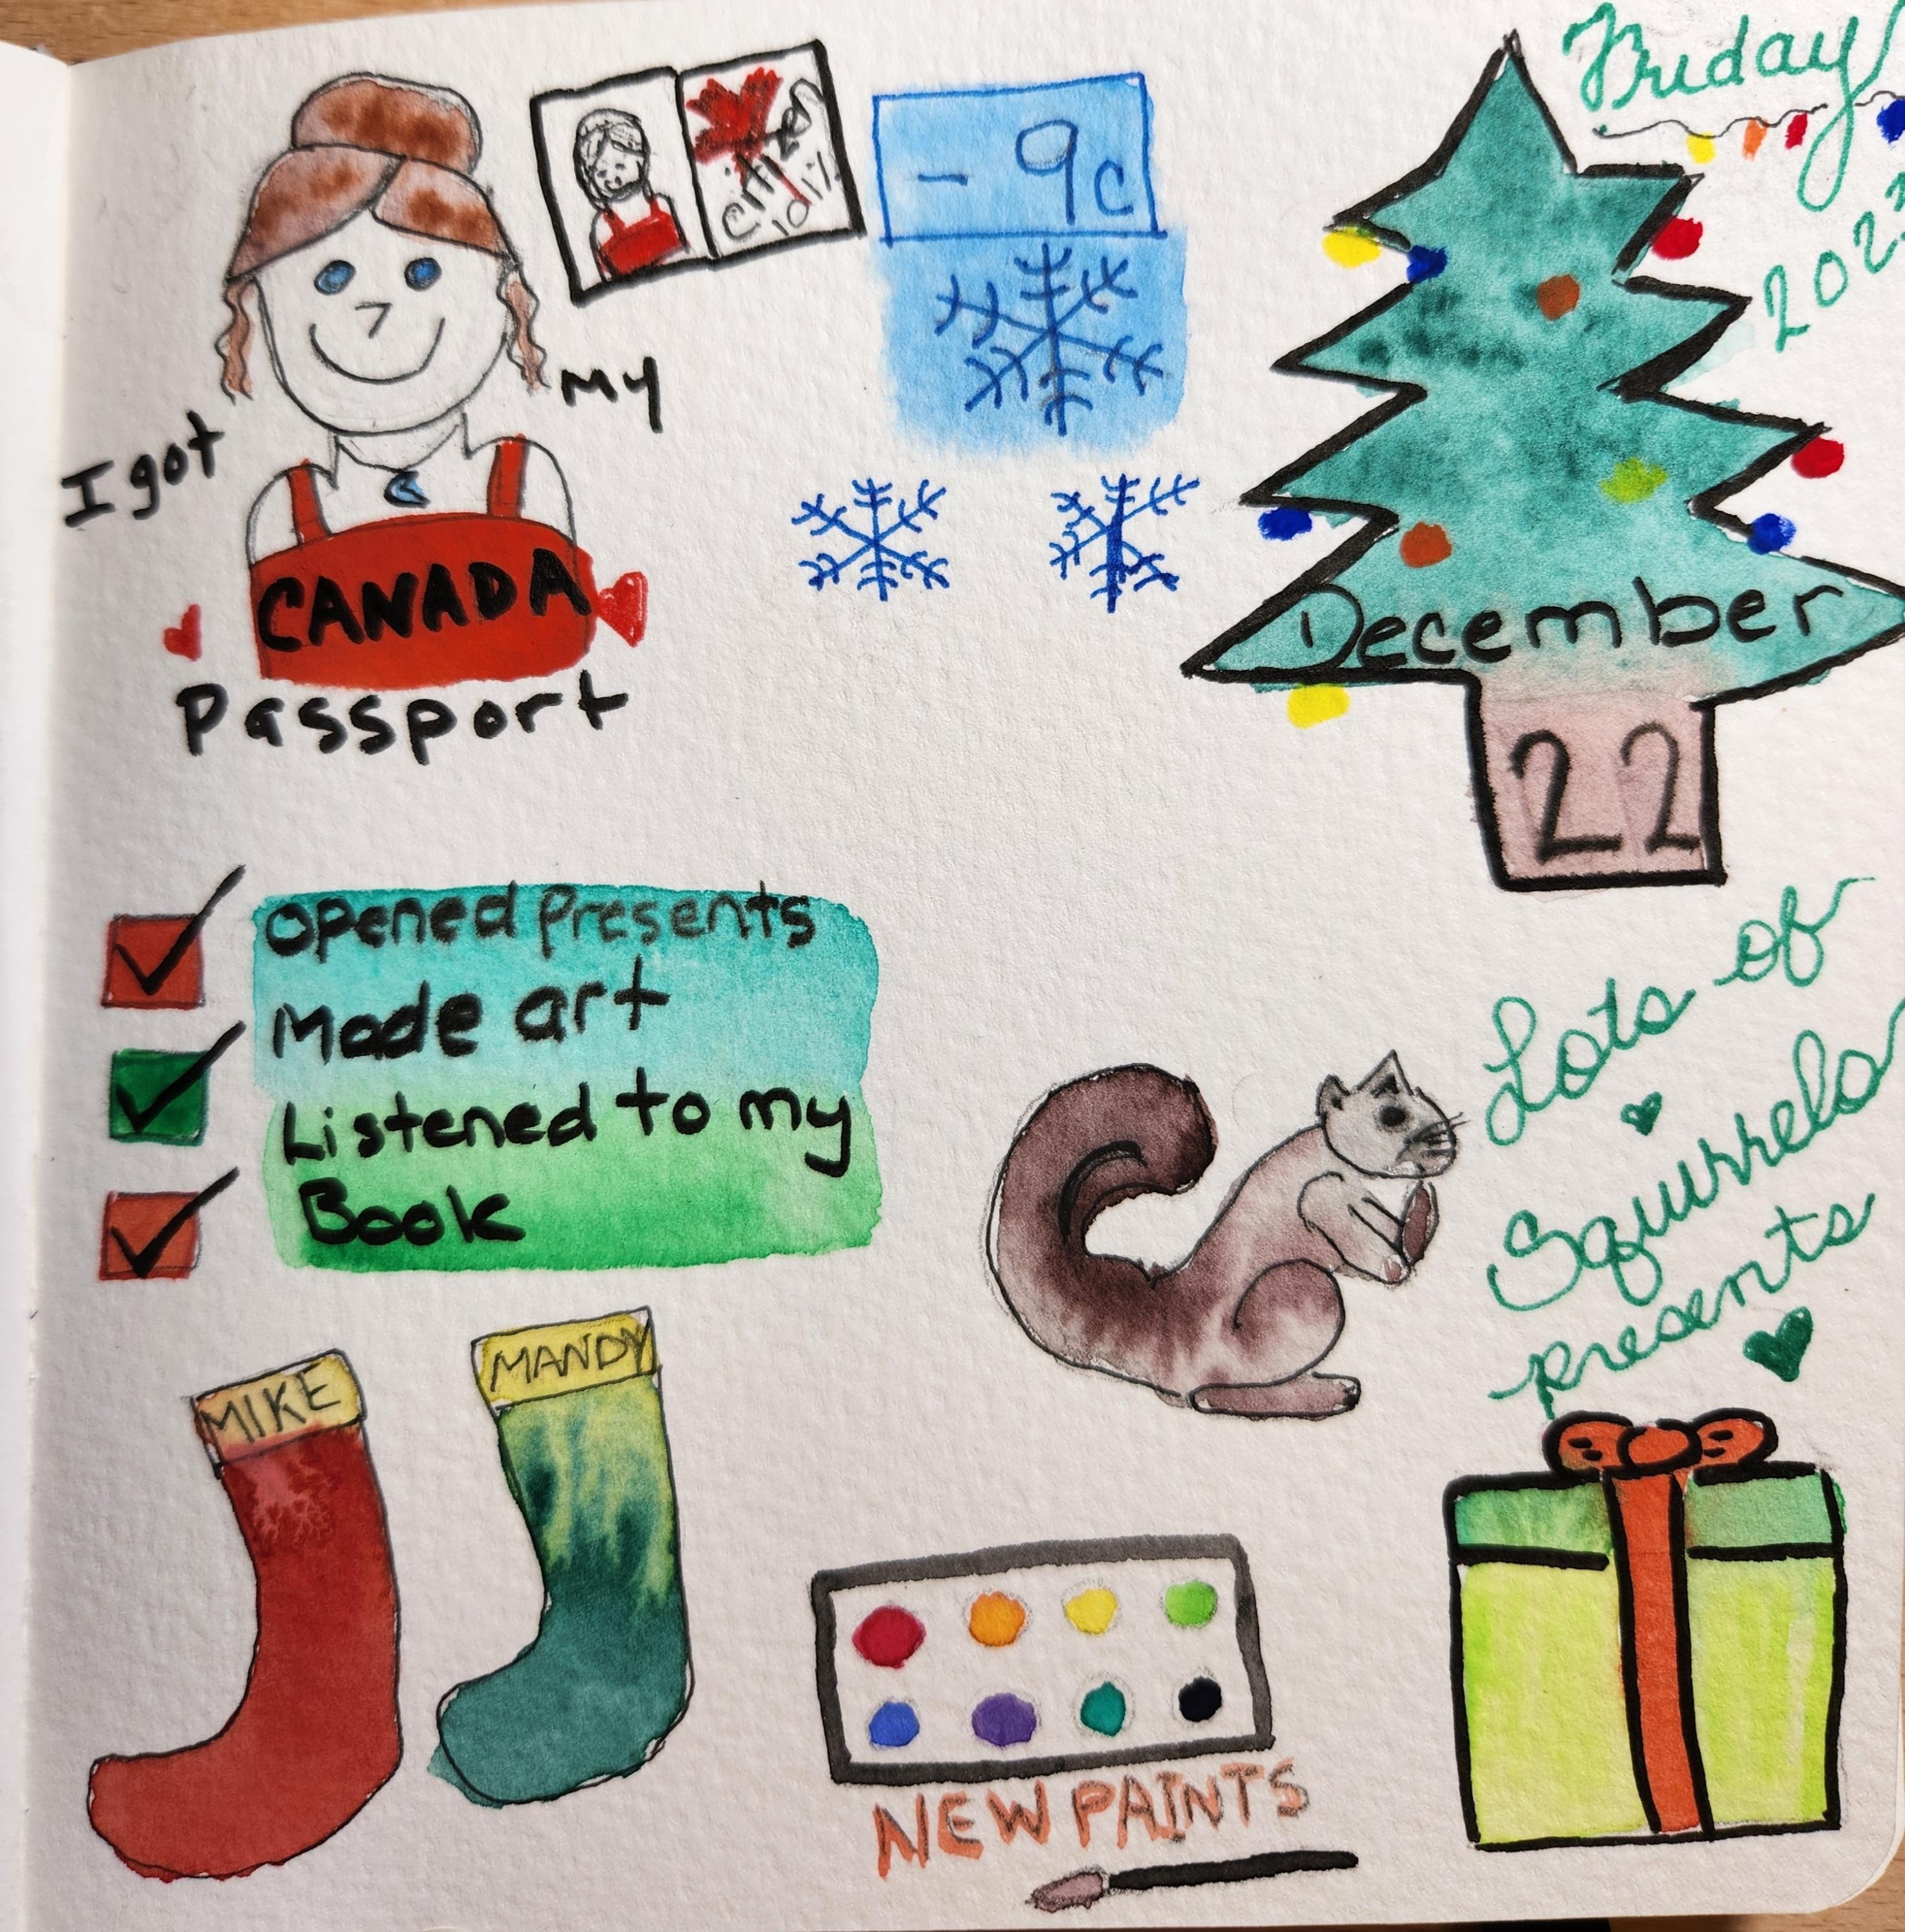 Friday
2023
-9c
I got my
CANADA
Passport
December
22
Opened Presents
Made art
Listened to my
Book
Lots of
Squirrels
presents
MIKE
MANDY
NEW PAINTS